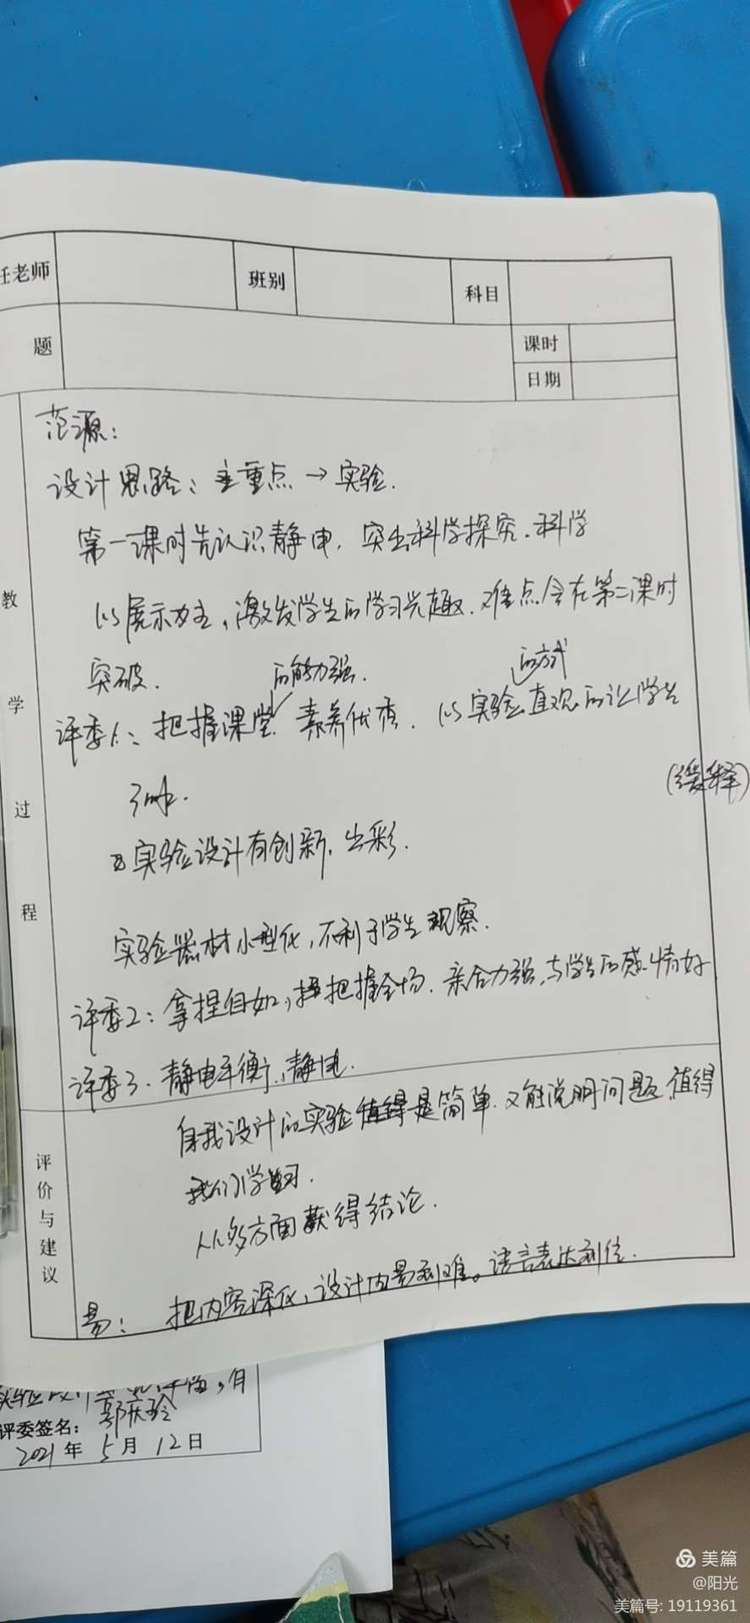 任老师 班别 科目
题 课时
日期
范源：
设计思路：主重点→实验.
第一课时先认识静电，突出科学探究.科学
以展示为主，激发学生的学习兴趣.难点会在第二课时
突破. 的能力强. 的方式
评委1：把握课堂 素养优秀. 以实验直观的让学生
(缓释)
实验设计有创新，出彩.
实验器材小型化，不利于学生观察.
评委2：拿捏自如，把握全场.亲合力强，与学生的感情好
评委3.静电平衡，静电.
自我设计的实验 是简单.又能说明问题，值得
我们学习.
从多方面获得结论.
易：把内容深化，设计由易到难。语言表达到位.
教学过程
评价与建议
评委签名：
2021年5月12日
美篇
@阳光
美篇号: 19119361